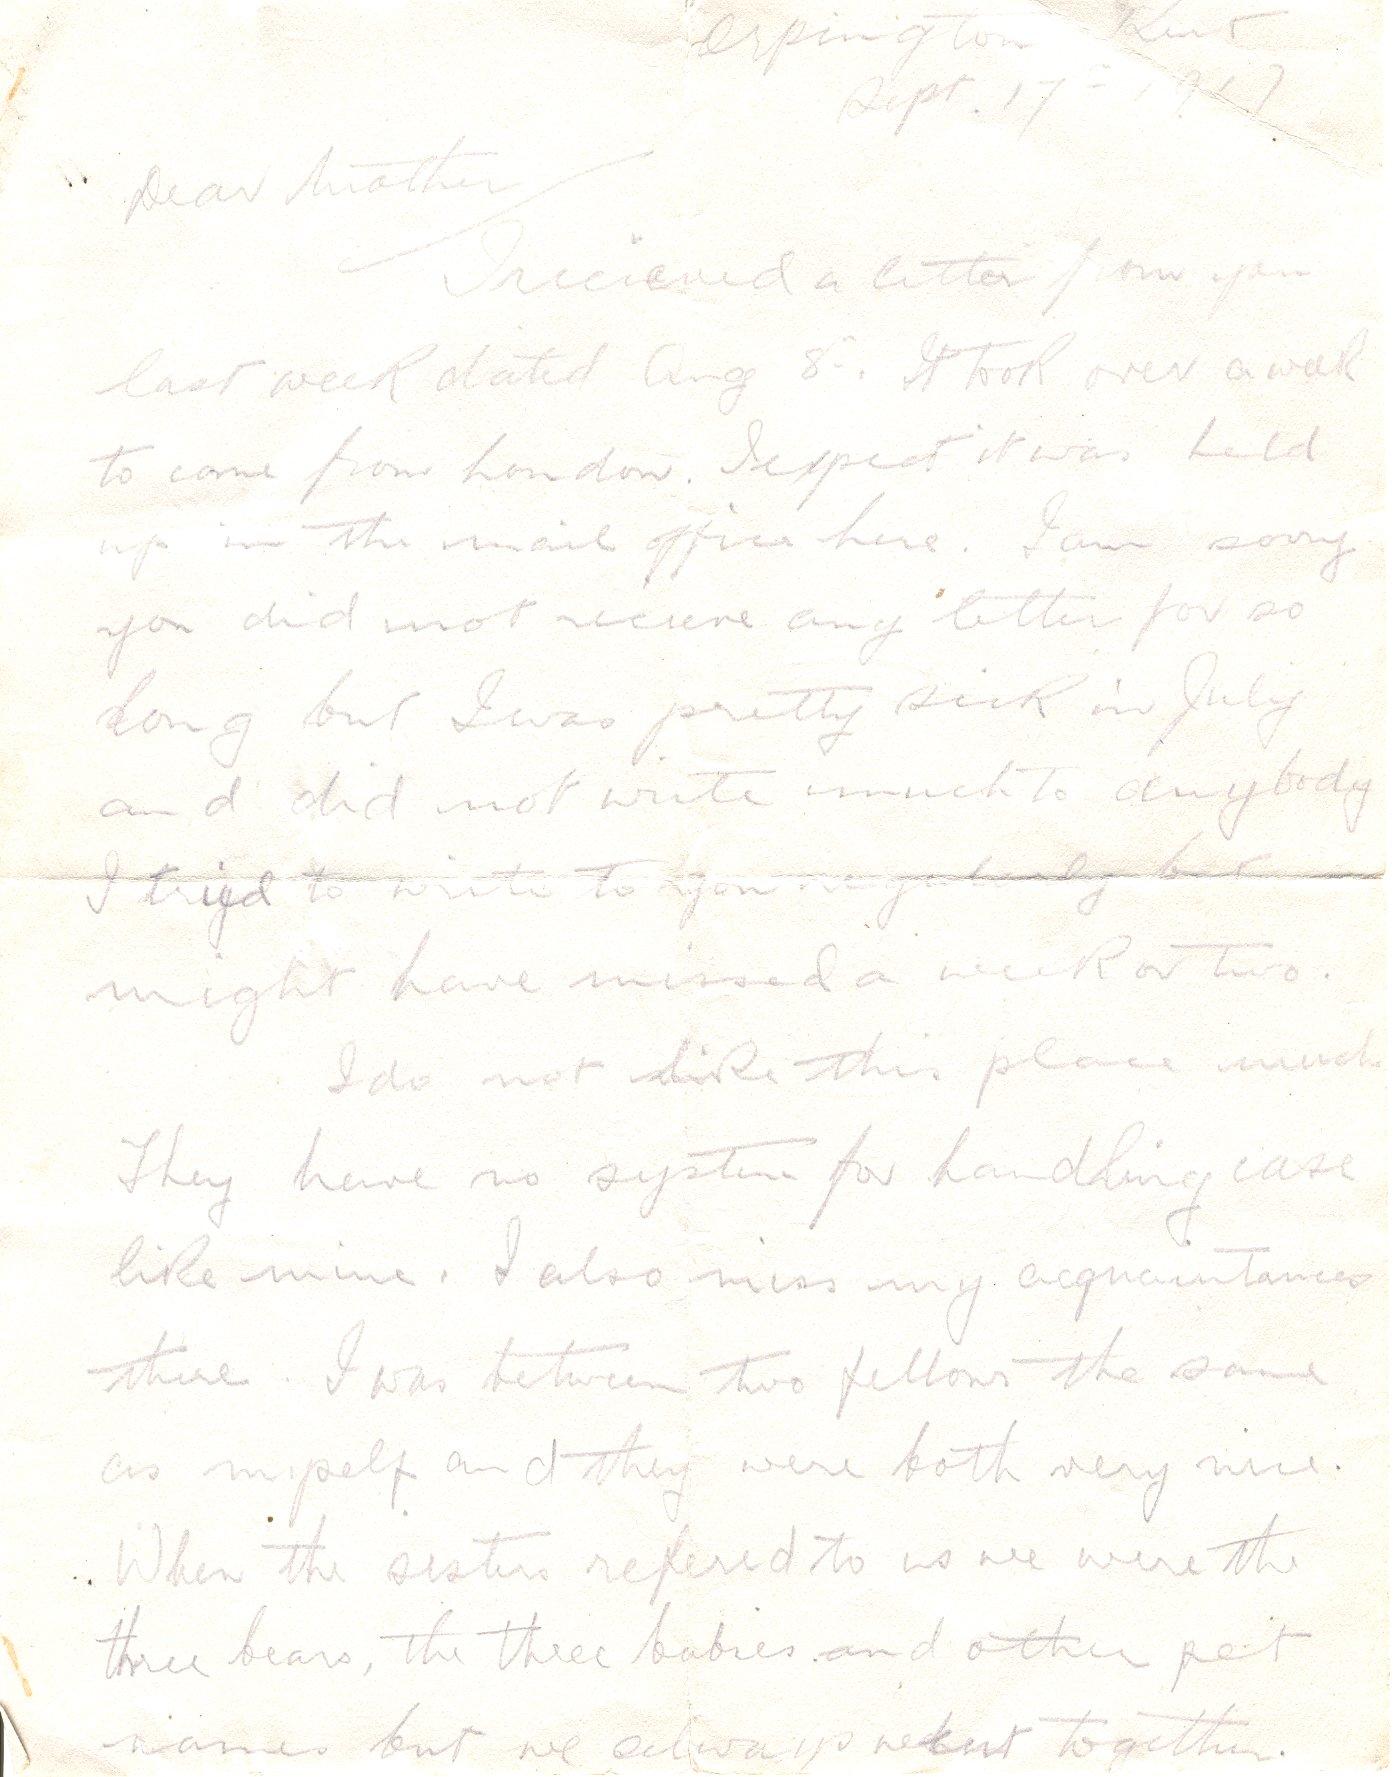 Orpington Kent
Sept. 17th 1917
Dear Mother
I recieved a letter from you
last week dated Aug 8th. It took over a week
to come from London. I expect it was held
up in the mail office here. I am sorry
you did not recieve any letter for so
long but I was pretty sick in July
and did not write much to anybody
I tryed to write to you regularly but
might have missed a week or two.
I do not like this place much
They have no system for handling case
like mine. I also miss my acquaintances
there. I was between two fellows the same
as myself and they were both very nice.
When the sisters refered to us we were the
three bears, the three babies and other pet
names but we always went together.